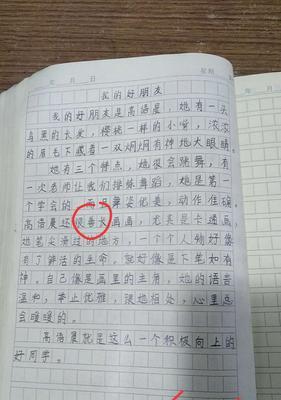 年 月 日
星期
我的好朋友
我的好朋友是高语晨，她有一头
乌黑的长发，樱桃一样的小嘴，浓浓
的眉毛下藏着一双炯炯有神地大眼睛。
她有三个特点，她很会跳舞，有
一次老师让我们排练舞蹈，她是第一
个学会的，而且舞姿优美，动作准确。
高语晨还很善长画画，尤其是卡通画，
她笔尖滑过的地方，一个个人物好像
有了鲜活的生命。就好像是下笔如有
神。自己像是画里的主角，她的语音
温和，举止优雅，跟她相处，心里总
会暖暖的。
高语晨就是这么一个积极向上的
好同学。